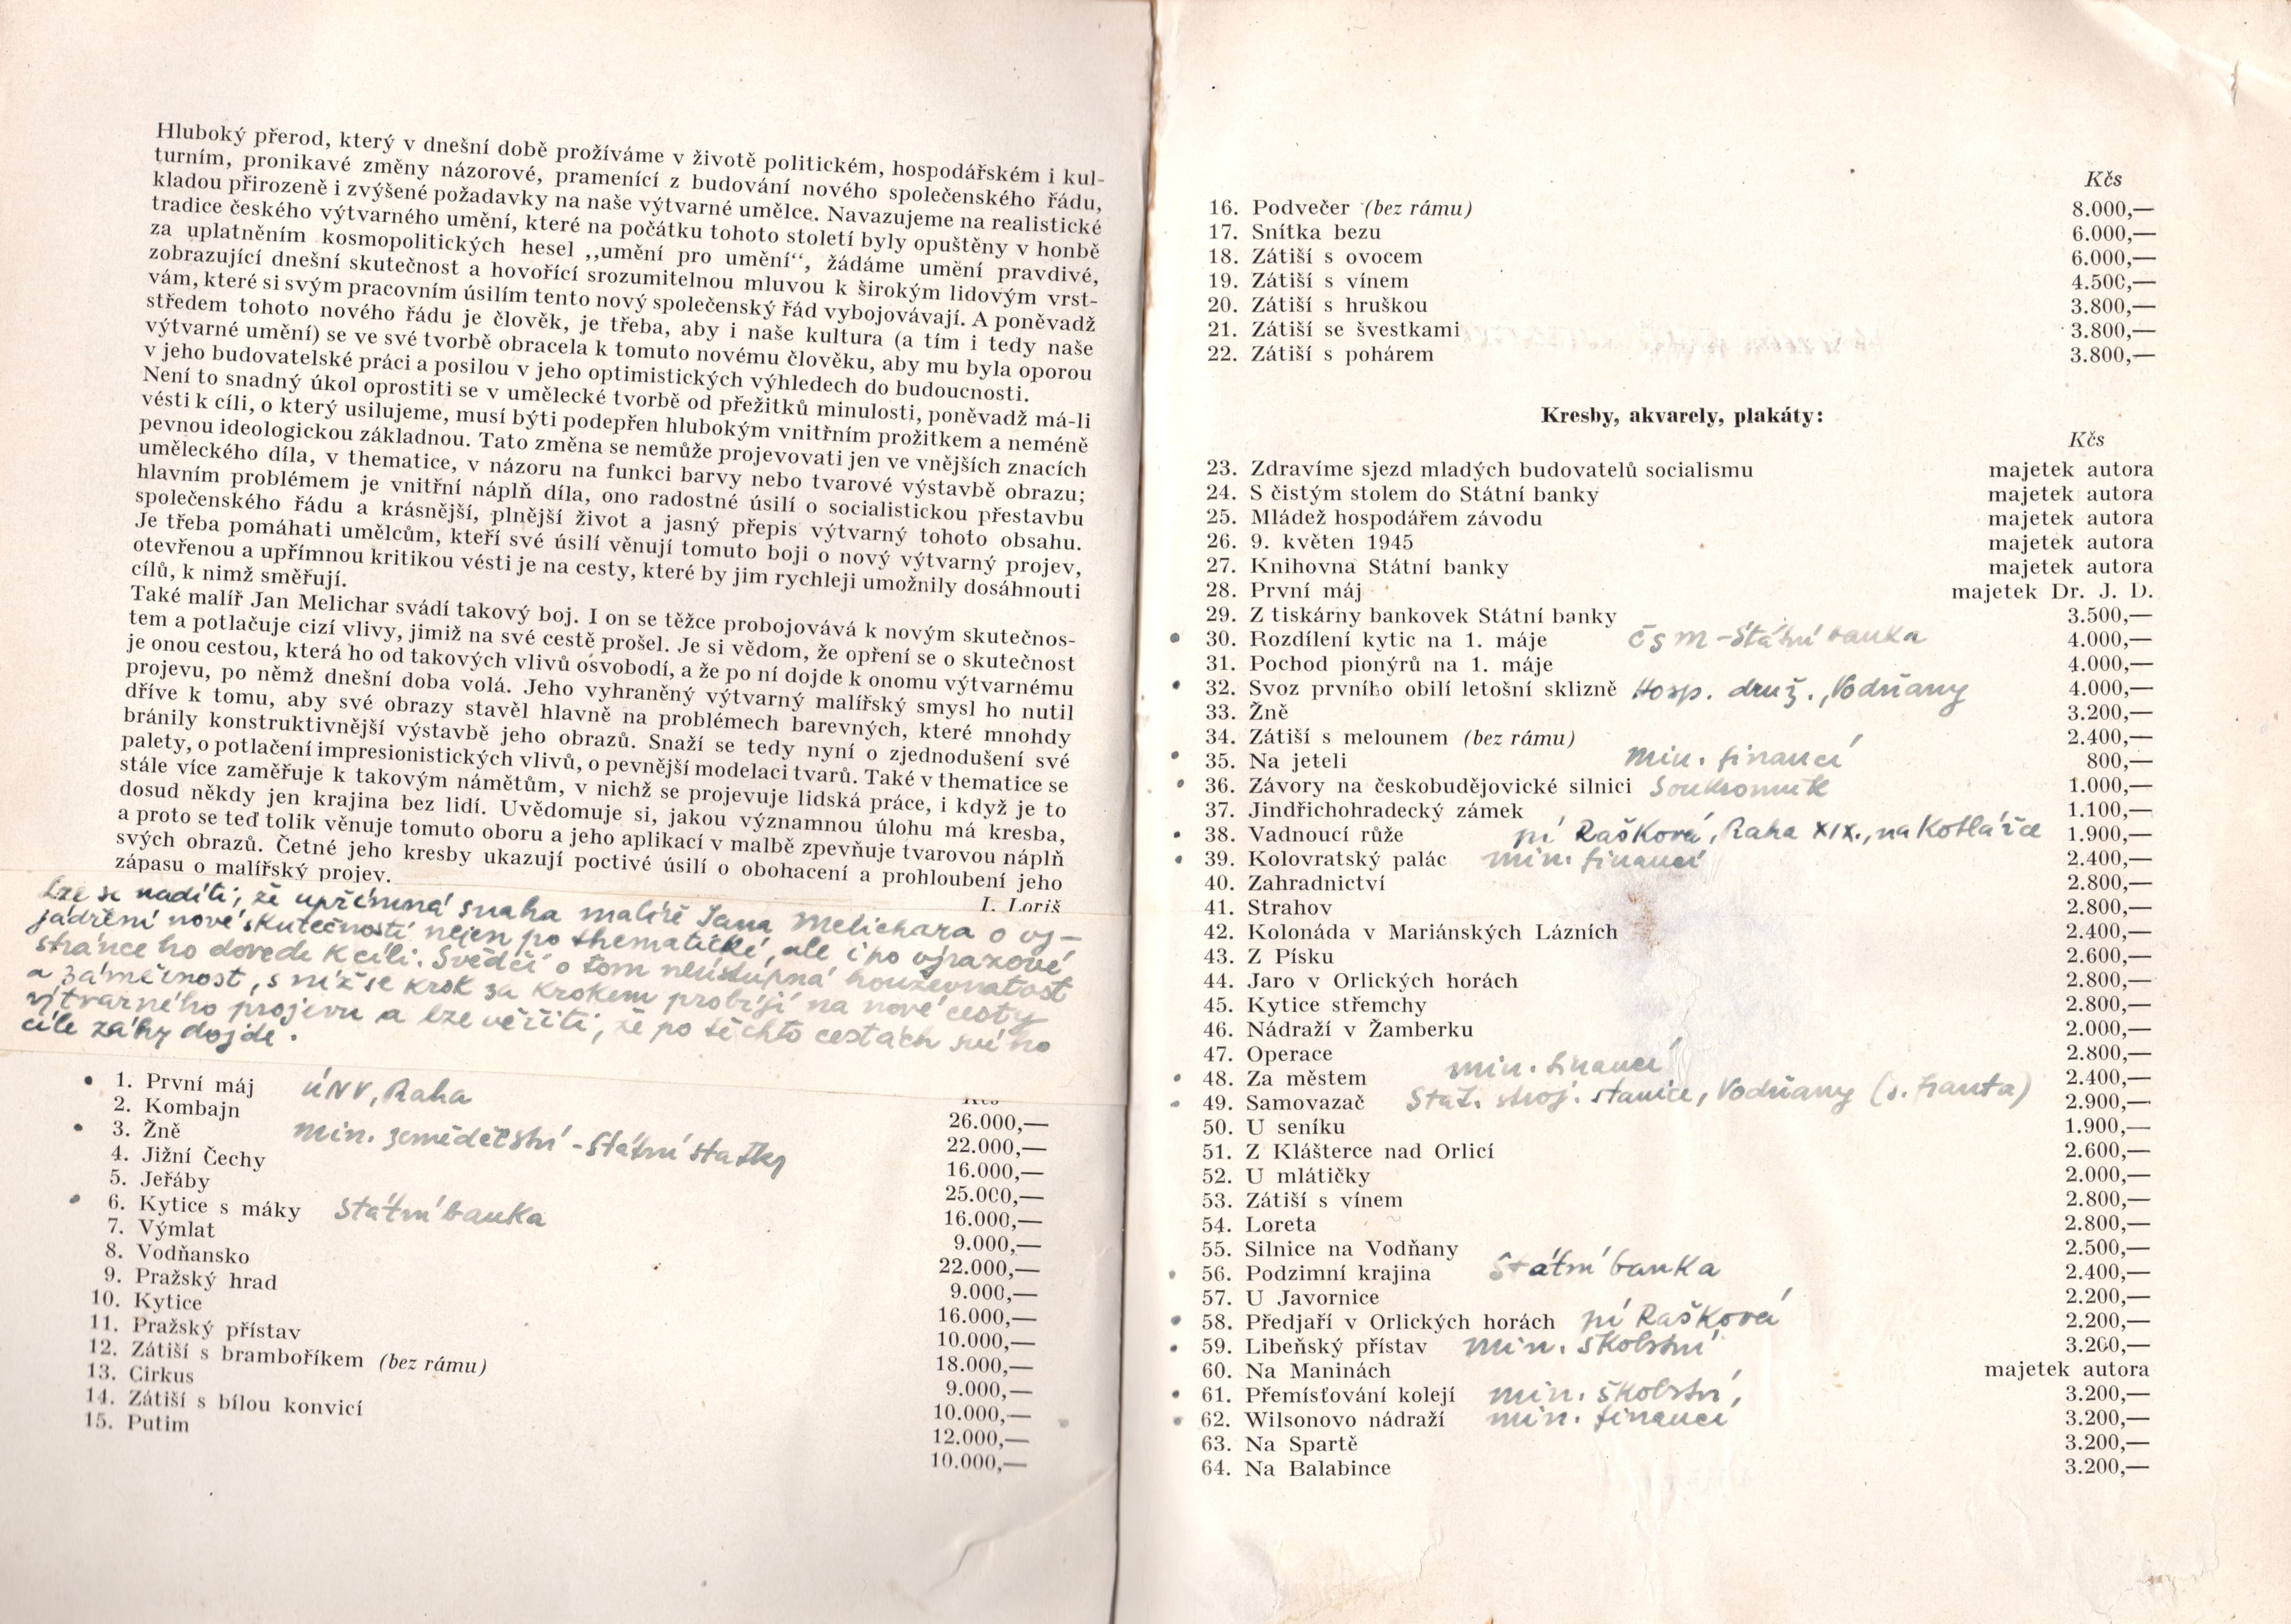 Hluboký přerod, který v dnešní době prožíváme v životě politickém, hospodářském i kul-
turním, pronikavé změny názorové, pramenící z budování nového společenského řádu,
kladou přirozeně i zvýšené požadavky na naše výtvarné umělce. Navazujeme na realistické
tradice českého výtvarného umění, které na počátku tohoto století byly opuštěny v honbě
za uplatněním kosmopolitických hesel „umění pro umění“, žádáme umění pravdivé,
zobrazující dnešní skutečnost a hovořící srozumitelnou mluvou k širokým lidovým vrst-
vám, které si svým pracovním úsilím tento nový společenský řád vybojovávají. A poněvadž
středem tohoto nového řádu je člověk, je třeba, aby i naše kultura (a tím i tedy naše
výtvarné umění) se ve své tvorbě obracela k tomuto novému člověku, aby mu byla oporou
v jeho budovatelské práci a posilou v jeho optimistických výhledech do budoucnosti.
Není to snadný úkol oprostiti se v umělecké tvorbě od přežitků minulosti, poněvadž má-li
vésti k cíli, o který usilujeme, musí býti podepřen hlubokým vnitřním prožitkem a neméně
pevnou ideologickou základnou. Tato změna se nemůže projevovati jen ve vnějších znacích
uměleckého díla, v thematice, v názoru na funkci barvy nebo tvarové výstavbě obrazu;
hlavním problémem je vnitřní náplň díla, ono radostné úsilí o socialistickou přestavbu
společenského řádu a krásnější, plnější život a jasný přepis výtvarný tohoto obsahu.
Je třeba pomáhati umělcům, kteří své úsilí věnují tomuto boji o nový výtvarný projev,
otevřenou a upřímnou kritikou vésti je na cesty, které by jim rychleji umožnily dosáhnouti
cílů, k nimž směřují.
Také malíř Jan Melichar svádí takový boj. I on se těžce probojovává k novým skutečnos-
tem a potlačuje cizí vlivy, jimiž na své cestě prošel. Je si vědom, že opření se o skutečnost
je onou cestou, která ho od takových vlivů osvobodí, a že po ní dojde k onomu výtvarnému
projevu, po němž dnešní doba volá. Jeho vyhraněný výtvarný malířský smysl ho nutil
dříve k tomu, aby své obrazy stavěl hlavně na problémech barevných, které mnohdy
bránily konstruktivnější výstavbě jeho obrazů. Snaží se tedy nyní o zjednodušení své
palety, o potlačení impresionistických vlivů, o pevnější modelaci tvarů. Také v thematice se
stále více zaměřuje k takovým námětům, v nichž se projevuje lidská práce, i když je to
dosud někdy jen krajina bez lidí. Uvědomuje si, jakou významnou úlohu má kresba,
a proto se teď tolik věnuje tomuto oboru a jeho aplikací v malbě zpevňuje tvarovou náplň
svých obrazů. Četné jeho kresby ukazují poctivé úsilí o obohacení a prohloubení jeho
zápasu o malířský projev.
I. Loriš
Lze se nadíti, že upřímná snaha malíře Jana Melichara o vy-
jádření nové skutečnosti nejen po thematické, ale i po výrazové
stránce ho dovede k cíli. Svědčí o tom neústupná houževnatost
a záměrnost, s níž se krok za krokem probíjí na nové cesty
výtvarného projevu a lze věřiti, že po těchto cestách svého
cíle záhy dojde.
1. První máj ÚNV, Praha 26.000,—
2. Kombajn 22.000,—
3. Žně min. zemědělství - Státní statky 16.000,—
4. Jižní Čechy 25.000,—
5. Jeřáby 16.000,—
6. Kytice s máky Státní banka 9.000,—
7. Výmlat 22.000,—
8. Vodňansko 9.000,—
9. Pražský hrad 16.000,—
10. Kytice 10.000,—
11. Pražský přístav 18.000,—
12. Zátiší s bramboříkem (bez rámu) 9.000,—
13. Cirkus 10.000,—
14. Zátiší s bílou konvicí 12.000,—
15. Putim 10.000,—
Kčs
16. Podvečer (bez rámu) 8.000,—
17. Snítka bezu 6.000,—
18. Zátiší s ovocem 6.000,—
19. Zátiší s vínem 4.500,—
20. Zátiší s hruškou 3.800,—
21. Zátiší se švestkami 3.800,—
22. Zátiší s pohárem 3.800,—
Kresby, akvarely, plakáty:
Kčs
23. Zdravíme sjezd mladých budovatelů socialismu majetek autora
24. S čistým stolem do Státní banky majetek autora
25. Mládež hospodářem závodu majetek autora
26. 9. květen 1945 majetek autora
27. Knihovna Státní banky majetek autora
28. První máj majetek Dr. J. D.
29. Z tiskárny bankovek Státní banky 3.500,—
30. Rozdílení kytic na 1. máje ČSM - Státní banka 4.000,—
31. Pochod pionýrů na 1. máje 4.000,—
32. Svoz prvního obilí letošní sklizně Hosp. druž., Vodňany 4.000,—
33. Žně 3.200,—
34. Zátiší s melounem (bez rámu) 2.400,—
35. Na jeteli min. financí 800,—
36. Závory na českobudějovické silnici Soukromník 1.000,—
37. Jindřichohradecký zámek 1.100,—
38. Vadnoucí růže pí Rašková, Praha XIX., na Kotlářce 1.900,—
39. Kolovratský palác min. financí 2.400,—
40. Zahradnictví 2.800,—
41. Strahov 2.800,—
42. Kolonáda v Mariánských Lázních 2.400,—
43. Z Písku 2.600,—
44. Jaro v Orlických horách 2.800,—
45. Kytice střemchy 2.800,—
46. Nádraží v Žamberku 2.000,—
47. Operace 2.800,—
48. Za městem min. financí 2.400,—
49. Samovazač Stát. stroj. stanice, Vodňany (s. Franta) 2.900,—
50. U seníku 1.900,—
51. Z Klášterce nad Orlicí 2.600,—
52. U mlátičky 2.000,—
53. Zátiší s vínem 2.800,—
54. Loreta 2.800,—
55. Silnice na Vodňany 2.500,—
56. Podzimní krajina Státní banka 2.400,—
57. U Javornice 2.200,—
58. Předjaří v Orlických horách pí Rašková 2.200,—
59. Libeňský přístav min. školství 3.200,—
60. Na Maninách majetek autora
61. Přemísťování kolejí min. školství, 3.200,—
62. Wilsonovo nádraží min. financí 3.200,—
63. Na Spartě 3.200,—
64. Na Balabince 3.200,—